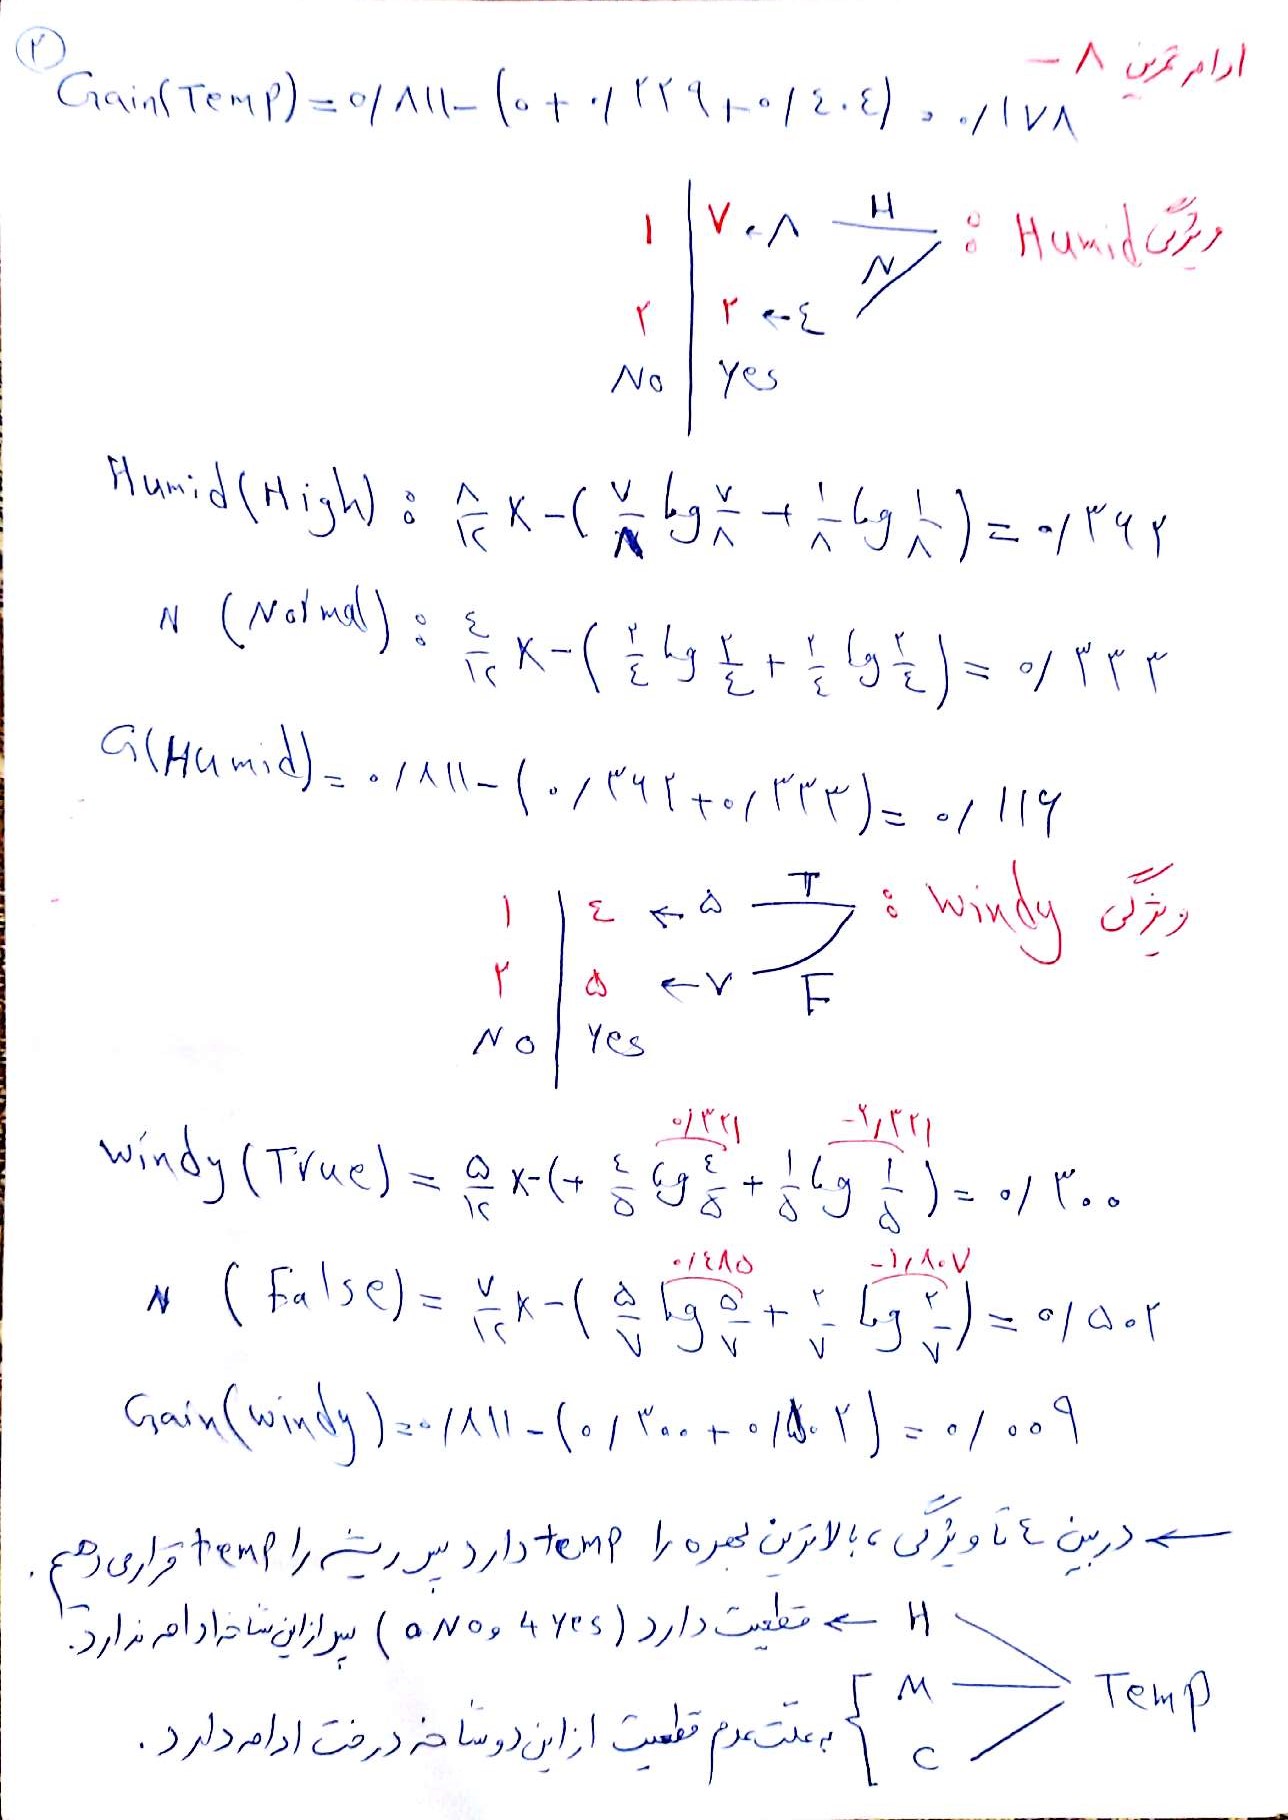 ۲
ادامه تمرین ۸ –
Gain(Temp) = ۰/۸۱۱ – (۰ + ۰/۲۲۹ + ۰/٤۰٤) = ۰/۱۷۸
ویژگی Humid :
H ۸ ← ۷ | ۱
N ٤ ← ۲ | ۲
No | Yes
Humid (High) : ۸/۱۲ × – (۷/۸ log ۷/۸ + ۱/۸ log ۱/۸) = ۰/۳۶۲
〃 (Normal) : ٤/۱۲ × – (۲/٤ log ۲/٤ + ۲/٤ log ۲/٤) = ۰/۳۳۳
G(Humid) = ۰/۸۱۱ – (۰/۳۶۲ + ۰/۳۳۳) = ۰/۱۱۶
ویژگی windy :
T ۵ ← ٤ | ۱
F ۷ ← ۵ | ۲
No | Yes
۰/۳۲۱ –۲/۳۲۱
windy (True) = ۵/۱۲ × – (+ ٤/۵ log ٤/۵ + ۱/۵ log ۱/۵) = ۰/۳۰۰
۰/٤۸۵ –۱/۸۰۷
〃 (False) = ۷/۱۲ × – (۵/۷ log ۵/۷ + ۲/۷ log ۲/۷) = ۰/۵۰۲
Gain(windy) = ۰/۸۱۱ – (۰/۳۰۰ + ۰/۵۰۲) = ۰/۰۰۹
← در بین ٤ تا ویژگی، بالاترین بهره را temp دارد پس ریشه را temp قرار می دهیم.
H ← قطعیت دارد (0 No و 4 Yes) پس از این شاخه ادامه ندارد.
Temp
M
C
به علت عدم قطعیت از این دو شاخه درخت ادامه دارد.